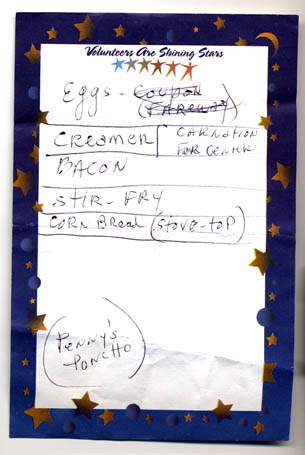 Volunteers Are Shining Stars
Eggs - Coupon
(FAREWAY)
CREAMER
CARNATION
FOR CENTUR
BACON
STIR-FRY
CORN BREAD (STOVE-TOP)
PENNY'S
PONCHO
Volunteers Are Shining Stars